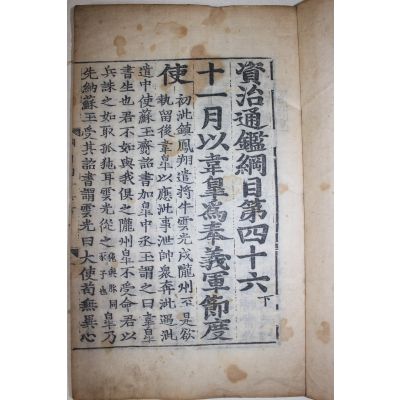 資治通鑑綱目第四十六下
十一月以韋皐爲奉義軍節度
使 初泚鎮鳳翔遣將牛雲光戍隴州至是欲
執留後韋皐以應泚事泄帥衆奔泚遇泚
遣中使蘇玉齎詔書加皐中丞玉謂之曰韋皐
書生也君不如與我俱之隴州皐不受命君以
兵誅之如取孤㹠耳雲光從之 㹠與豚同豕子也 皐乃
先納蘇玉受其詔書謂雲光曰大使苟無異心